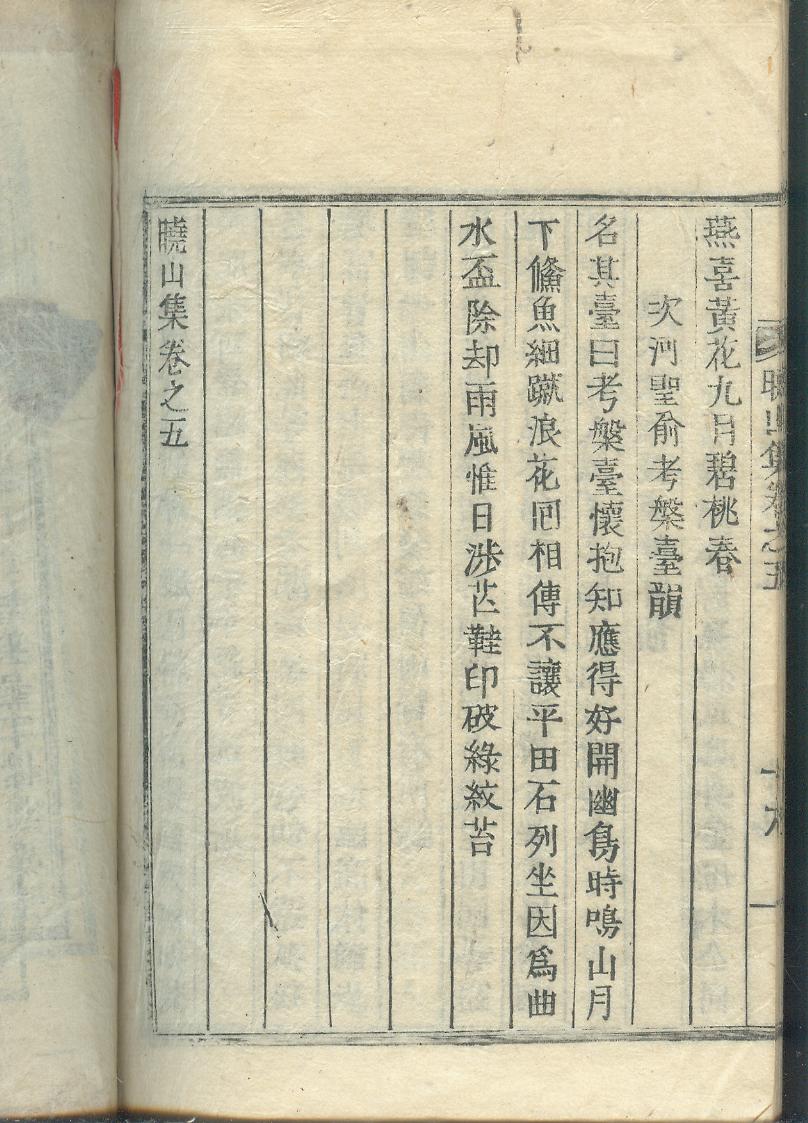 曉山集卷之五
十六
燕喜黃花九日碧桃春
次河聖俞考槃臺韻
名其臺曰考槃臺懷抱知應得好開幽鳥時鳴山月
下鯈魚細蹴浪花囘相傳不讓平田石列坐因爲曲
水盃除却雨風惟日涉芒鞋印破綠紋苔
曉山集卷之五